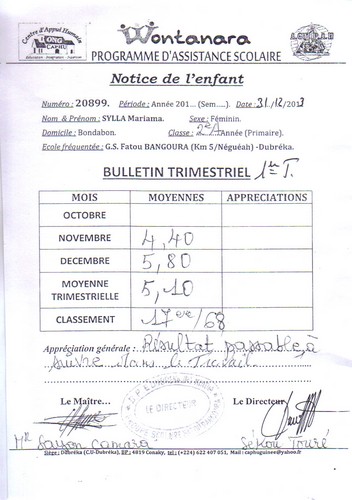 Centre d'Appui Humain
ONG
CAPHU
Wontanara
PROGRAMME D'ASSISTANCE SCOLAIRE
Notice de l'enfant
Numéro : 20899. Période : Année 201... (Sem.....). Date : 31/12/2013
Nom & Prénom : SYLLA Mariama. Sexe : Féminin.
Domicile : Bondabon. Classe : 2e A Année (Primaire).
Ecole fréquentée : G.S. Fatou BANGOURA (Km 5/Néguéah) -Dubréka.
BULLETIN TRIMESTRIEL 1er T.
MOIS MOYENNES APPRECIATIONS
OCTOBRE
NOVEMBRE 4,40
DECEMBRE 5,80
MOYENNE TRIMESTRIELLE 5,10
CLASSEMENT 17ere/68
Appréciation générale : Résultat passable, à
suivre dans le Travail.
Le Maître... Le Directeur
LE DIRECTEUR
Mr Camara Sekou Touré
Siège : Dubréka (C.U-Dubréka), BP : 4819 Conaky, tel : (+224) 622 407 051, Mail : caphuguinee@yahoo.fr